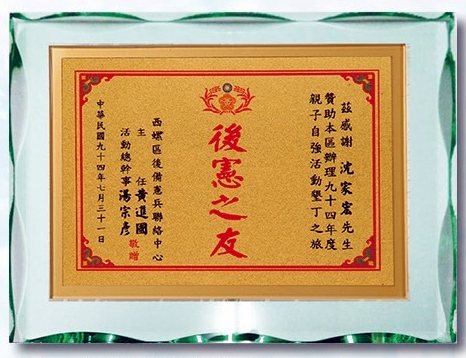 茲感謝 沈家宏先生
贊助本區辦理九十四年度
親子自強活動墾丁之旅
後憲之友
西螺區後備憲兵聯絡中心
主任 黃進國
活動總幹事 湯宗彥
敬贈
中華民國九十四年七月三十一日